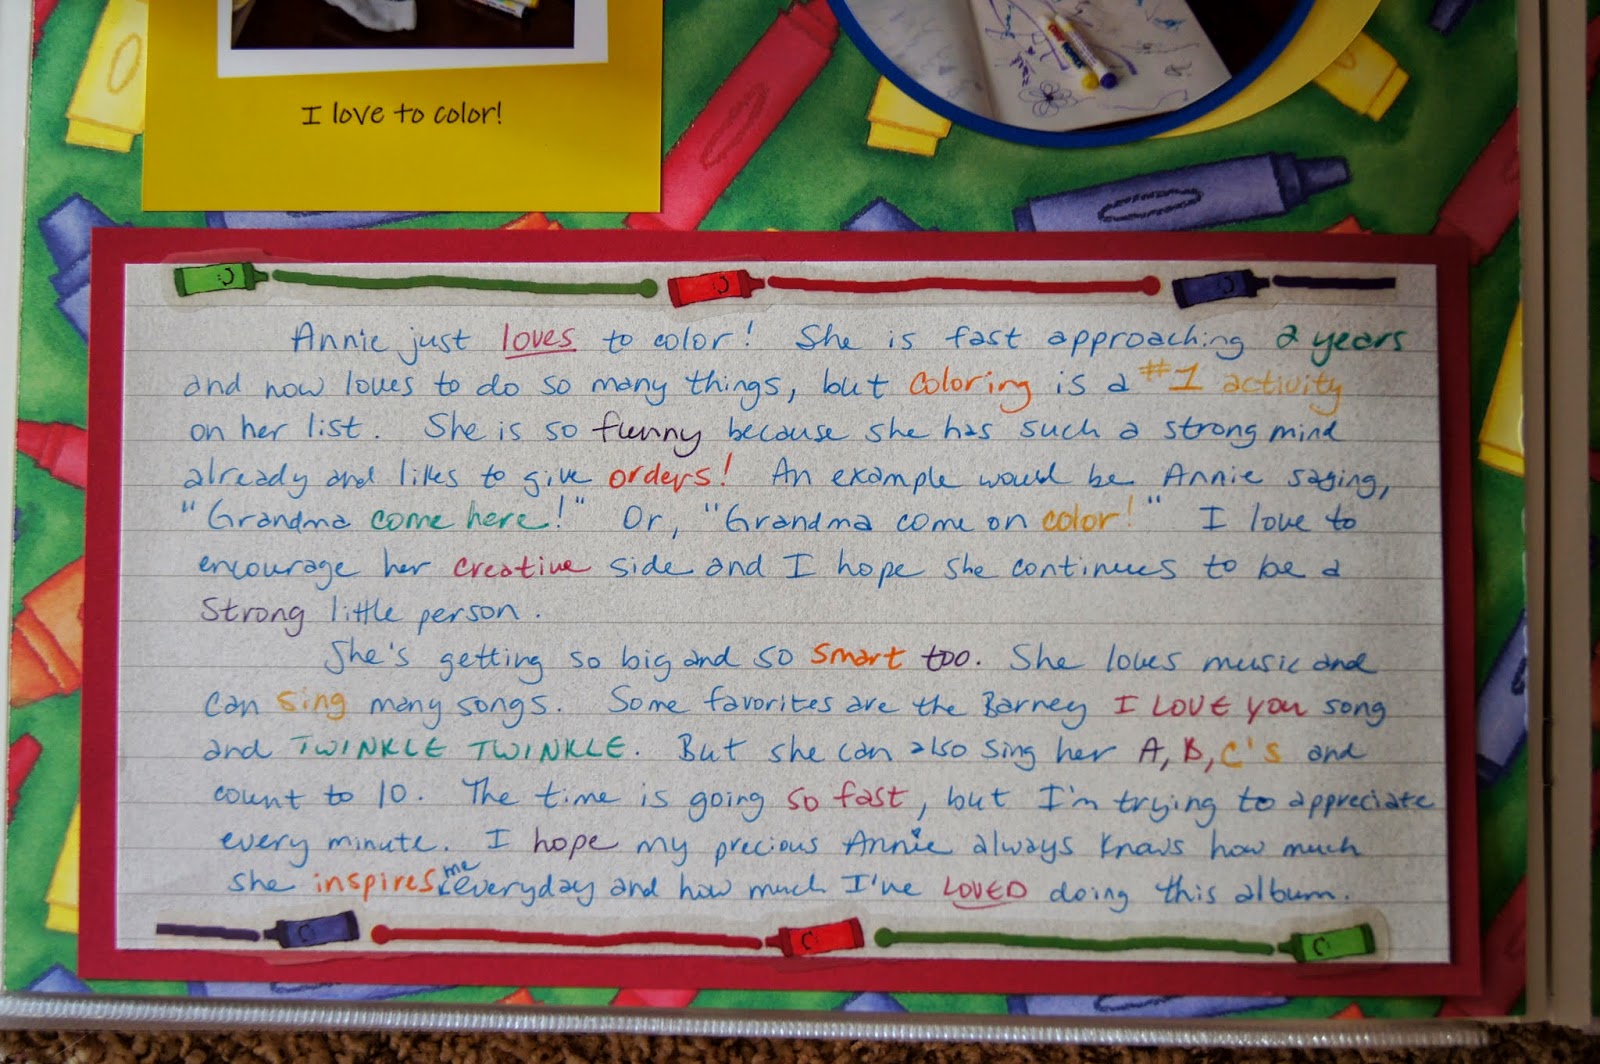 I love to color!
Annie just loves to color! She is fast approaching 2 years
and now loves to do so many things, but coloring is a #1 activity
on her list. She is so funny because she has such a strong mind
already and likes to give orders! An example would be Annie saying,
"Grandma come here!" Or, "Grandma come on color!" I love to
encourage her creative side and I hope she continues to be a
strong little person.
She's getting so big and so smart too. She loves music and
can sing many songs. Some favorites are the Barney I LOVE YOU song
and TWINKLE TWINKLE. But she can also sing her A, B, C's and
count to 10. The time is going so fast, but I'm trying to appreciate
every minute. I hope my precious Annie always knows how much
she inspires me everyday and how much I've LOVED doing this album.